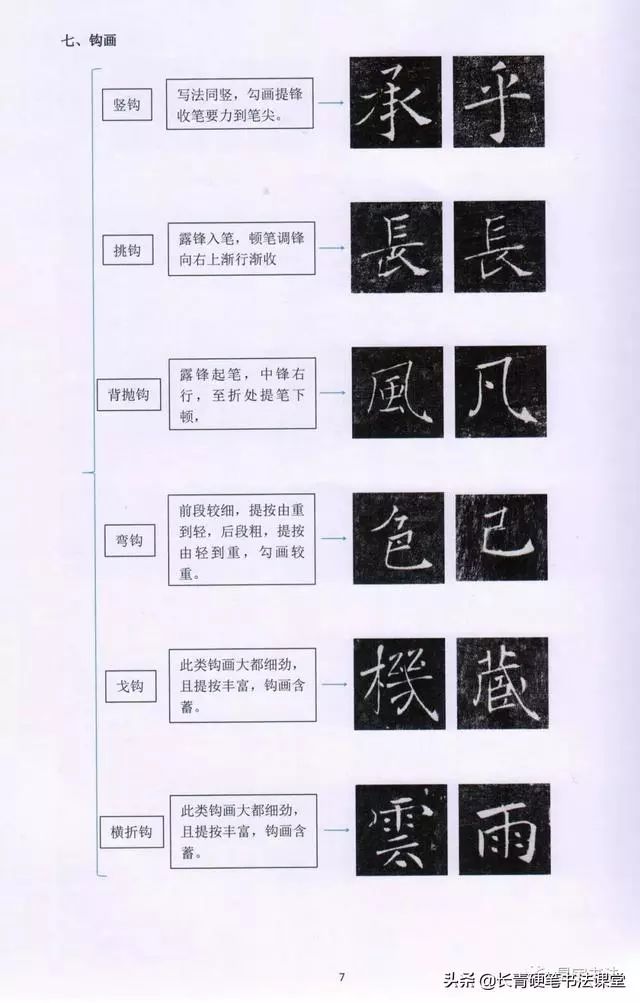 七、钩画
竖钩
写法同竖，勾画提锋
收笔要力到笔尖。
承 乎
挑钩
露锋入笔，顿笔调锋
向右上渐行渐收
長 長
背抛钩
露锋起笔，中锋右
行，至折处提笔下
顿，
風 凡
弯钩
前段较细，提按由重
到轻，后段粗，提按
由轻到重，勾画较
重。
色 己
戈钩
此类钩画大都细劲，
且提按丰富，钩画含
蓄。
機 蔵
横折钩
此类钩画大都细劲，
且提按丰富，钩画含
蓄。
雲 雨
7
头条 @长青硬笔书法课堂